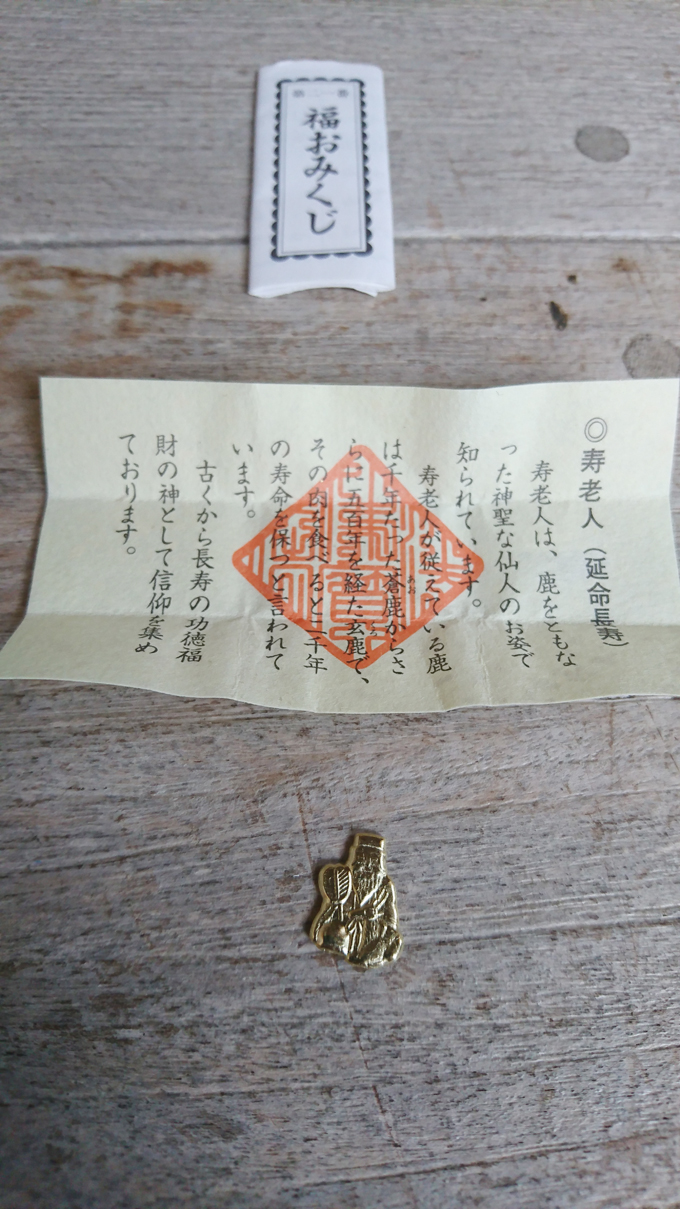 福おみくじ
◎寿老人（延命長寿）
寿老人は、鹿をともな
った神聖な仙人のお姿で
知られています。
寿老人が従えている鹿
は千年たった蒼鹿からさ
あお
らに五百年を経た玄鹿で、
くろ
その肉を食べると二千年
の寿命を保つと言われて
います。
古くから長寿の功徳福
財の神として信仰を集め
ております。